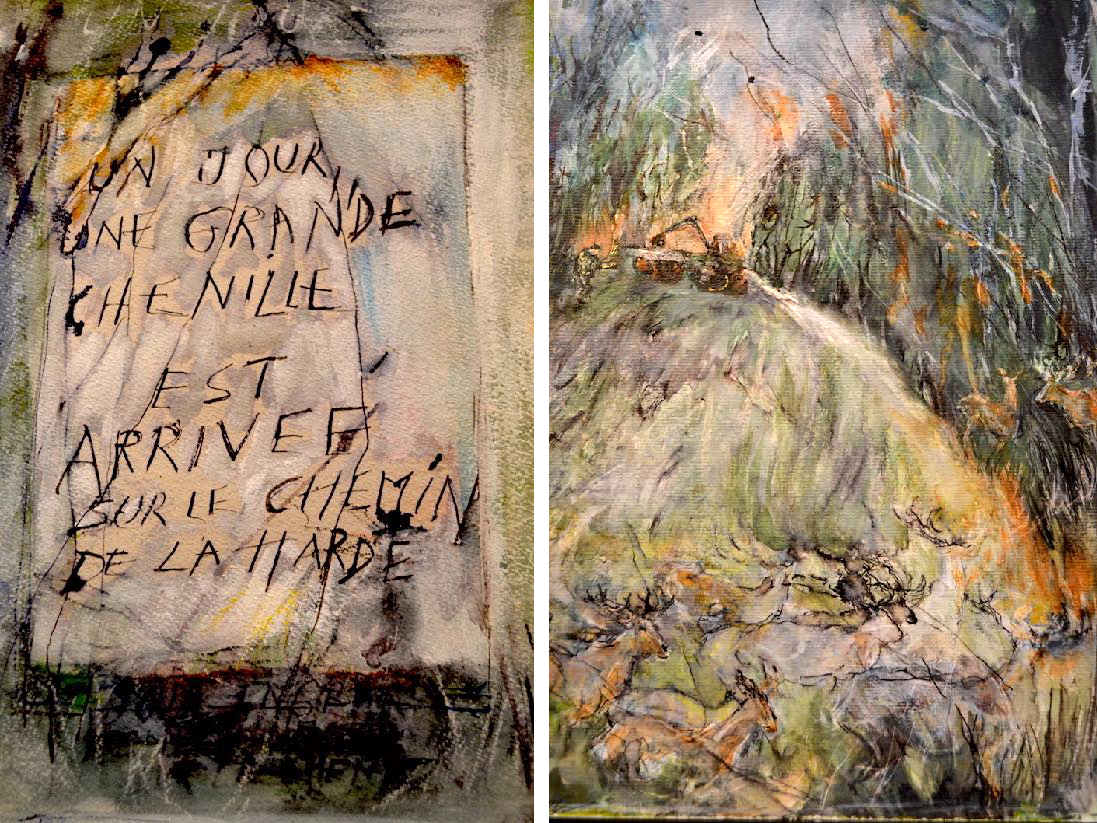 UN JOUR,
UNE GRANDE
CHENILLE
EST
ARRIVÉE
SUR LE CHEMIN
DE LA HARDE